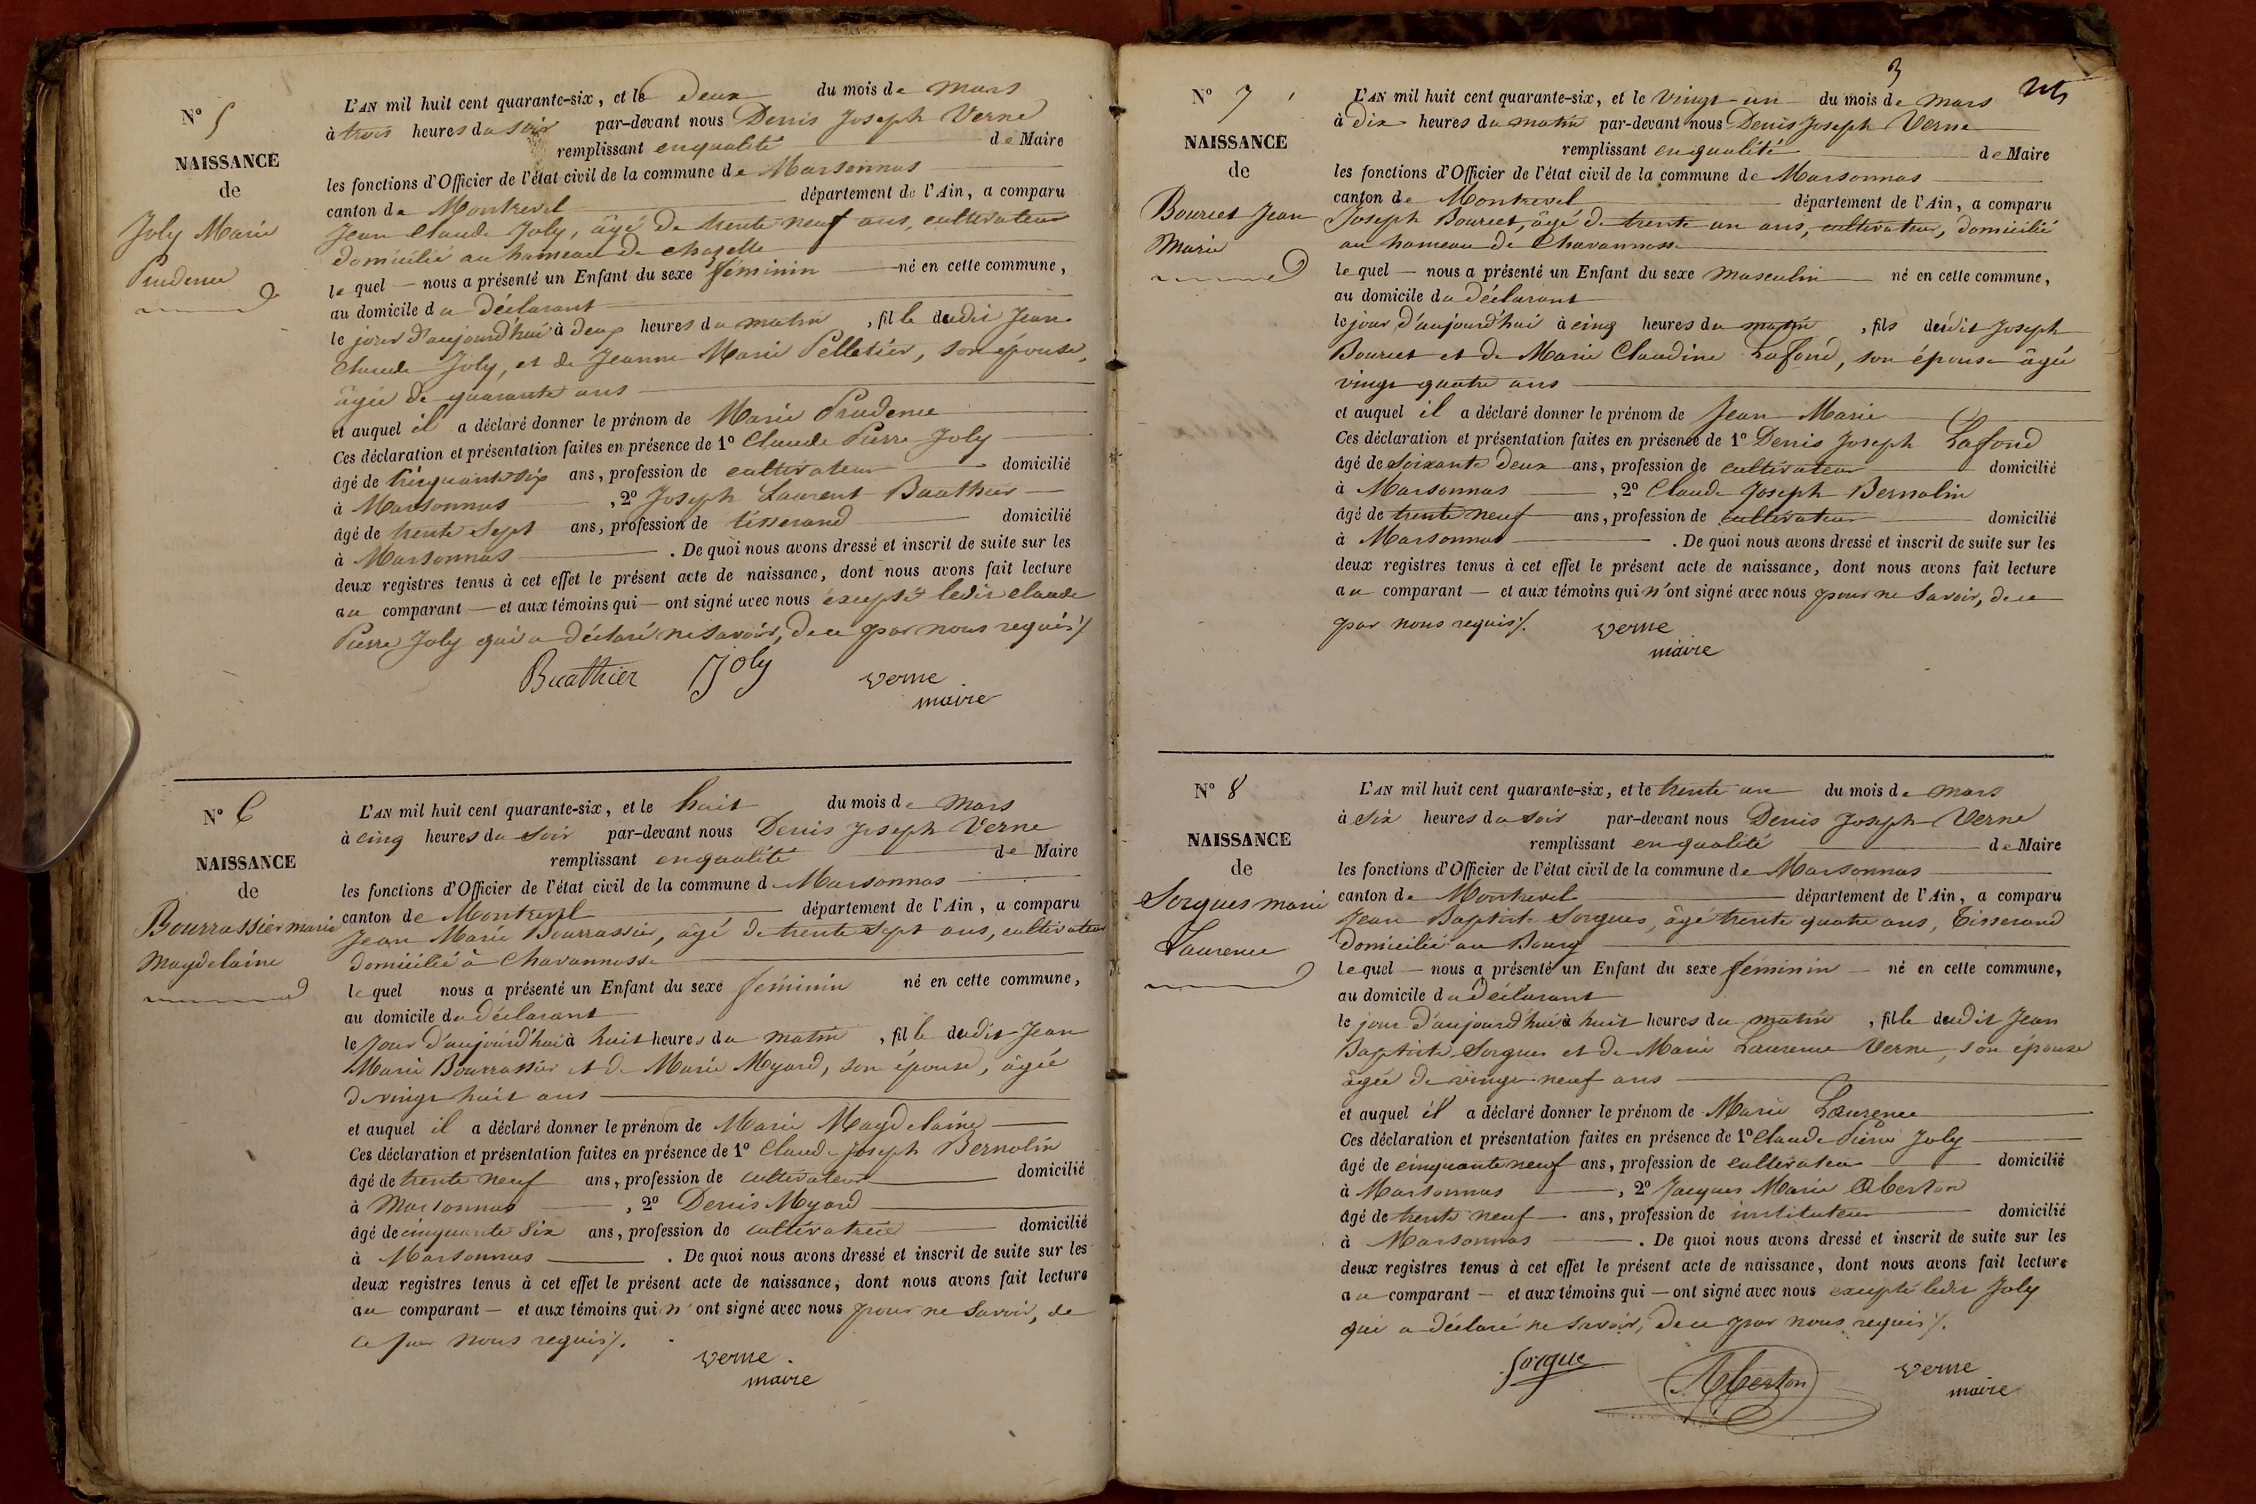 N° 5
NAISSANCE
de
Joly Marie
Prudence
L'AN mil huit cent quarante-six, et le deux du mois de mars
à trois heures du soir par-devant nous Denis Joseph Verne
remplissant en qualité de Maire
les fonctions d'Officier de l'état civil de la commune de Marsonnas
canton de Montrevel département de l'Ain, a comparu
Jean Claude Joly, âgé de trente neuf ans, cultivateur
domicilié au hameau de Chazelle
lequel — nous a présenté un Enfant du sexe féminin né en cette commune,
au domicile du déclarant
le jour d'aujourd'hui à deux heures du matin, fille dudit Jean
Claude Joly, et de Jeanne Marie Pelletier, son épouse,
âgée de quarante ans
et auquel il a déclaré donner le prénom de Marie Prudence
Ces déclaration et présentation faites en présence de 1° Claude Pierre Joly
âgé de ans, profession de cultivateur domicilié
à Marsonnas, 2° Joseph Laurent Buathier
âgé de trente sept ans, profession de tisserand domicilié
à Marsonnas. De quoi nous avons dressé et inscrit de suite sur les
deux registres tenus à cet effet le présent acte de naissance, dont nous avons fait lecture
au comparant — et aux témoins qui — ont signé avec nous excepté ledit Claude
Pierre Joly qui a déclaré ne savoir, de ce par nous requis ./.
Buathier Joly Verne
maire
N° 6
NAISSANCE
de
Bourrassier marie
Magdelaine
L'AN mil huit cent quarante-six, et le huit du mois de mars
à cinq heures du soir par-devant nous Denis Joseph Verne
remplissant en qualité de Maire
les fonctions d'Officier de l'état civil de la commune d Marsonnas
canton de Montrevel département de l'Ain, a comparu
Jean Marie Bourrassier, âgé de trente sept ans, cultivateur
domicilié à Chavannosse
lequel nous a présenté un Enfant du sexe féminin né en cette commune,
au domicile du déclarant
le jour d'aujourd'hui à huit heures du matin, fille dudit Jean
Marie Bourrassier et de Marie Myard, son épouse, âgée
de vingt huit ans
et auquel il a déclaré donner le prénom de Marie Magdelaine
Ces déclaration et présentation faites en présence de 1° Claude Joseph Bernolin
âgé de trente neuf ans, profession de cultivateur domicilié
à Marsonnas, 2° Denis Myard
âgé de cinquante six ans, profession de domicilié
à Marsonnas. De quoi nous avons dressé et inscrit de suite sur les
deux registres tenus à cet effet le présent acte de naissance, dont nous avons fait lecture
au comparant — et aux témoins qui n'ont signé avec nous pour ne savoir, de
ce par nous requis ./.
Verne
maire
3
N° 7
NAISSANCE
de
Bourcet Jean
Marie
L'AN mil huit cent quarante-six, et le vingt-un du mois de mars
à dix heures du matin par-devant nous Denis Joseph Verne
remplissant en qualité de Maire
les fonctions d'Officier de l'état civil de la commune de Marsonnas
canton de Montrevel département de l'Ain, a comparu
Joseph Bourcet, âgé de trente un ans, cultivateur, domicilié
au hameau de Chavannosse
lequel — nous a présenté un Enfant du sexe masculin né en cette commune,
au domicile du déclarant
le jour d'aujourd'hui à cinq heures du matin, fils dudit Joseph
Bourcet et de Marie Claudine Lafond, son épouse âgée
vingt quatre ans
et auquel il a déclaré donner le prénom de Jean Marie
Ces déclaration et présentation faites en présence de 1° Denis Joseph Lafond
âgé de soixante deux ans, profession de cultivateur domicilié
à Marsonnas, 2° Claude Joseph Bernolin
âgé de trente neuf ans, profession de cultivateur domicilié
à Marsonnas. De quoi nous avons dressé et inscrit de suite sur les
deux registres tenus à cet effet le présent acte de naissance, dont nous avons fait lecture
au comparant — et aux témoins qui n'ont signé avec nous pour ne savoir, de ce
par nous requis ./.
Verne
maire
N° 8
NAISSANCE
de
Sorgues marie
Laurence
L'AN mil huit cent quarante-six, et le trente un du mois de mars
à six heures du soir par-devant nous Denis Joseph Verne
remplissant en qualité de Maire
les fonctions d'Officier de l'état civil de la commune de Marsonnas
canton de Montrevel département de l'Ain, a comparu
Jean Baptiste Sorgues, âgé trente quatre ans, Tisserand
domicilié au Bourg
lequel — nous a présenté un Enfant du sexe féminin — né en cette commune,
au domicile du déclarant
le jour d'aujourd'hui à huit heures du matin, fille dudit Jean
Baptiste Sorgues et de Marie Laurence Verne, son épouse
âgée de vingt-neuf ans
et auquel il a déclaré donner le prénom de Marie Laurence
Ces déclaration et présentation faites en présence de 1° Claude Pierre Joly
âgé de cinquante neuf ans, profession de cultivateur domicilié
à Marsonnas, 2° Jacques Marie Oberton
âgé de trente neuf ans, profession de instituteur domicilié
à Marsonnas. De quoi nous avons dressé et inscrit de suite sur les
deux registres tenus à cet effet le présent acte de naissance, dont nous avons fait lecture
au comparant — et aux témoins qui — ont signé avec nous excepté ledit Joly
qui a déclaré ne savoir, de ce par nous requis ./.
Sorgue Oberton Verne
maire